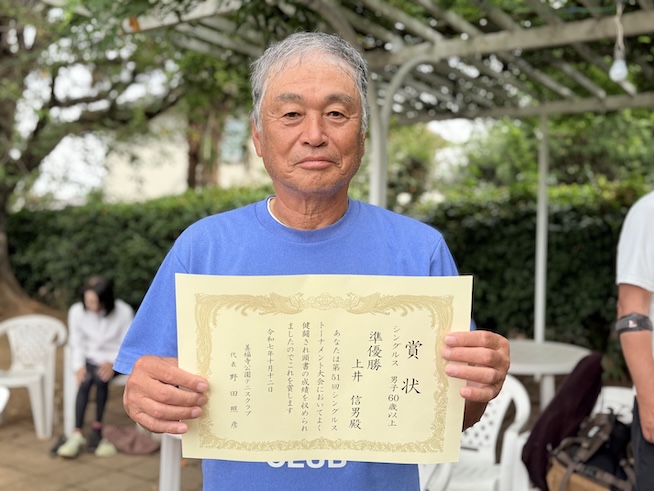 賞状
シングルス 男子60歳以上
準優勝
上井 信男殿
あなたは第51回シングルス
トーナメント大会においてよく
健闘され頭書の成績を収められ
ましたのでこれを賞します
令和七年十月十二日
善福寺公園テニスクラブ
代表 野田 照彦
CLUB